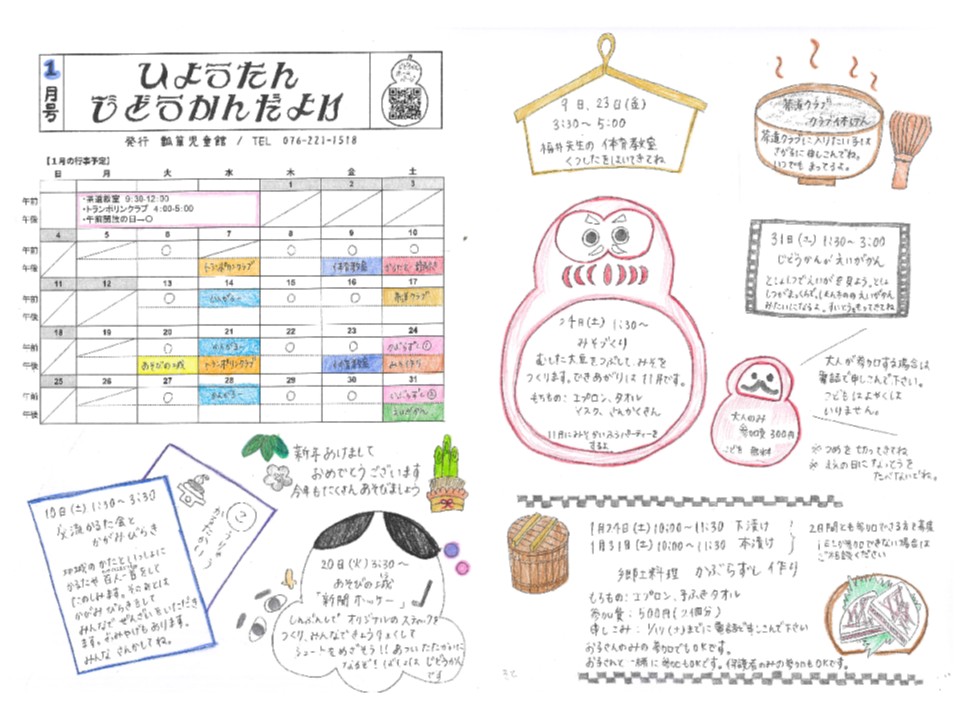 1月号
ひょうたん
じどうかんだより
発行 瓢箪児童館 / TEL 076-221-1518
【1月の行事予定】
日 月 火 水 木 金 土
1 2 3
午前
午後
・茶道教室 9:30-12:00
・トランポリンクラブ 4:00-5:00
・午前開放の日→○
4 5 6 7 8 9 10
午前 ○ ○ ○ ○
午後 トランポリンクラブ 体育教室
11 12 13 14 15 16 17
午前 ○ ○ ○
午後 茶道クラブ
18 19 20 21 22 23 24
午前 ○ ○ ○ かぶらずし①
午後 あそびの城 トランポリンクラブ 体育教室 みそづくり
25 26 27 28 29 30 31
午前 ○ ○ ○ かぶらずし②
午後 えいがかん
新年あけまして
おめでとうございます
今年もたくさんあそびましょう
10日(土) 1:30~3:30
交流かるた会と
かがみびらき
地域のかたといっしょに
かるたや百人一首をして
たのしみます。そのあとは
かがみびらきをして
みんなでぜんざいをいただき
ます。おみやげもあります。
みんなさんかしてね。
20日(火) 3:30~
あそびの城
「新聞ホッケー」
しんぶんしでオリジナルのスティックを
つくり、みんなできょうりょくして
シュートをめざそう!!
9日、23日(金)
3:30~5:00
福井先生の体育教室
くつしたをはいてきてね
茶道クラブ
茶道クラブに入りたい子は
いつでもまってるよ。
31日(土) 1:30~3:00
じどうかんがえいがかん
24日(土) 1:30~
みそづくり
むした大豆をつぶして、みそを
つくります。できあがりは11月です。
もちもの:エプロン、タオル
マスク、さんかくきん
11月にみそかいふうパーティーを
するよ。
大人のみ
参加費300円
こども無料
大人が参加する場合は
電話で申しこんで下さい。
こどもはよやくは
いりません。
※つめを切ってきてね
たべないでね。
1月24日(土) 10:00~11:30 下漬け
1月31日(土) 10:00~11:30 本漬け
2日間とも参加できる方を募集
もし参加できない場合は
ご相談ください
郷土料理 かぶらずし作り
もちもの:エプロン、手ふきタオル
参加費:500円
申しこみ: までに電話で申しこんで下さい
お子さんのみの参加でもOKです。
お子さんと一緒に参加もOKです。保護者のみの参加もOKです。